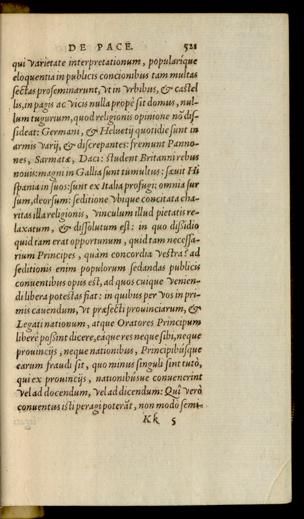 DE PACE. 521
qui varietate interpretationum, popularique
eloquentia in publicis concionibus tam multas
sectas proseminarunt, vt in vrbibus, & castel
lis, in pagis ac vicis nulla propè sit domus, nul-
lum tugurium, quod religionis opinione nō dis-
sideat: Germani, & Heluetij quotidie sunt in
armis varij, & discrepantes: fremunt Panno-
nes, Sarmatæ, Daci: student Britanni rebus
nouis: magni in Gallia sunt tumultus: sæuit Hi
spania in suos: sunt ex Italia profugi: omnia sur
sum, deorsum: seditione vbique concitata cha-
ritas illa religionis, vinculum illud pietatis re-
laxatum, & dissolutum est: in quo dissidio
quid tam erat opportunum, quid tam necessa-
rium Principes, quàm concordia vestra? ad
seditionis enim populorum sedandas publicis
conuentibus opus est, ad quos cuique venien-
di libera potestas fiat: in quibus per vos in pri-
mis cauendum, vt præfecti prouinciarum, &
Legati nationum, atque Oratores Principum
liberè possint dicere, eaque res neque sibi, neque
prouincijs, neque nationibus, Principibúsque
earum fraudi sit, quo minus singuli sint tutò,
qui ex prouincijs, nationibúsue conuenerint
vel ad docendum, vel ad dicendum: Qui verò
conuentus isti peragi poterāt, non modò semi-
Kk 5